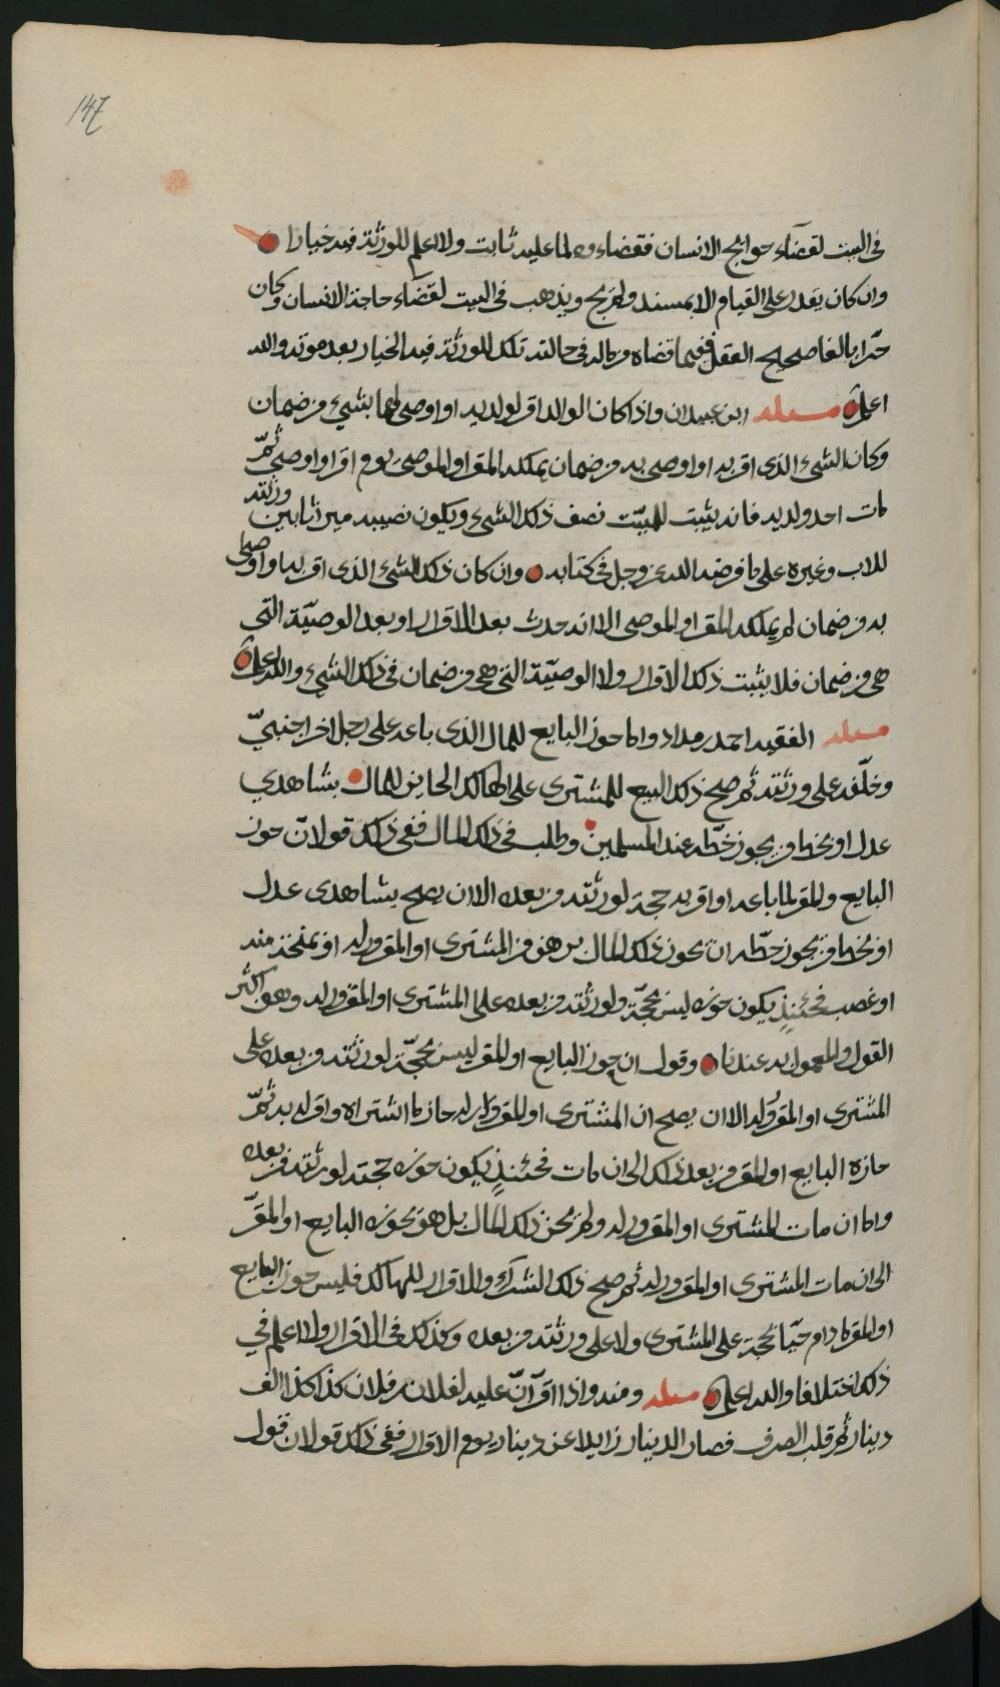 147
في البيت لقضآء حوائج الانسان فقضاءه لما عليه ثابت ولا اعلم للورثة فيه خيارا
وان كان يقدر على القيام الا بمسند ولم يخرج ويذهب في البيت لقضآء حاجة الانسان وكان
حرّا بالغا صحيح العقل ففيما قضاه من ماله في حالته تلك للورثة فيه الخيار بعد موته والله
اعلم مسئله ابن عبيدان واذا كان الوالد اقر لولديه او اوصى لهما بشيء من ضمان
وكان الشيء الذي اقر به او اوصى به من ضمان يملكه المقر او الموصي يوم اقر او اوصى ثمّ
مات احد ولديه فانه يثبت للميّت نصف ذلك الشيء ويكون نصيبه ميراثا بين ورثته
للاب وغيره على ما فرضه الله عز وجل في كتابه وان كان ذلك الشيء الذي اقر به او اوصى
به من ضمان لم يملكه المقر او الموصي الا انه حدث بعد الاقرار او بعد الوصيّة التي
هي من ضمان فلا يثبت ذلك الاقرار ولا الوصيّة التي هي من ضمان في ذلك الشيء والله اعلم
مسئله الفقيه احمد بن مداد واما حوز البايع للمال الذي باعه على رجل اخر اجنبيّ
وخلّفه على ورثته ثم صح ذلك البيع للمشتري على الهالك الحائز للمال بشاهدي
عدل او بخط من يجوز خطّه عند المسلمين وطلب في ذلك المال ففي ذلك قولان حوز
البايع والمقر لما باعه او اقر به حجة لورثته من بعده الا ان يصح بشاهدى عدل
او بخط من يجوز خطّه ان يحوز ذلك المال برهن من المشترى او المقرور له او بمنحة منه
او غصب فحينئذٍ يكون حوزه ليس بحجّة ولورثته من بعده على المشترى او المقرور له وهو اكثر
القول والمعمول به عندنا وقول ان حوز البايع او المقر ليس بحجّة لورثته من بعده على
المشترى او المقرور له الا ان يصح ان المشترى او المقرور له حاز ما اشتراه واقر له به ثمّ
حازه البايع او المقر من بعد ذلك الى ان مات فحينئذٍ يكون حوزه حجة لورثته من بعده
واما ان مات المشترى او المقرور له ولم يحز ذلك المال بل هو يحوزه البايع او المقرّ
الى ان مات المشترى او المقرور له ثم صح ذلك الشرآء والاقرار للهالك فليس حوز البايع
او المقر ما دام حيّا بحجة على المشترى ولا على ورثته من بعده وكذلك في الاقرار ولا اعلم في
ذلك اختلافا والله اعلم مسئله ومنه واذا اقرّ انّ عليه لفلان بن فلان كذا كذا الف
دينار ثم قلب الصرف فصار الدينار زايلا عن دينار يوم الاقرار ففي ذلك قولان قول